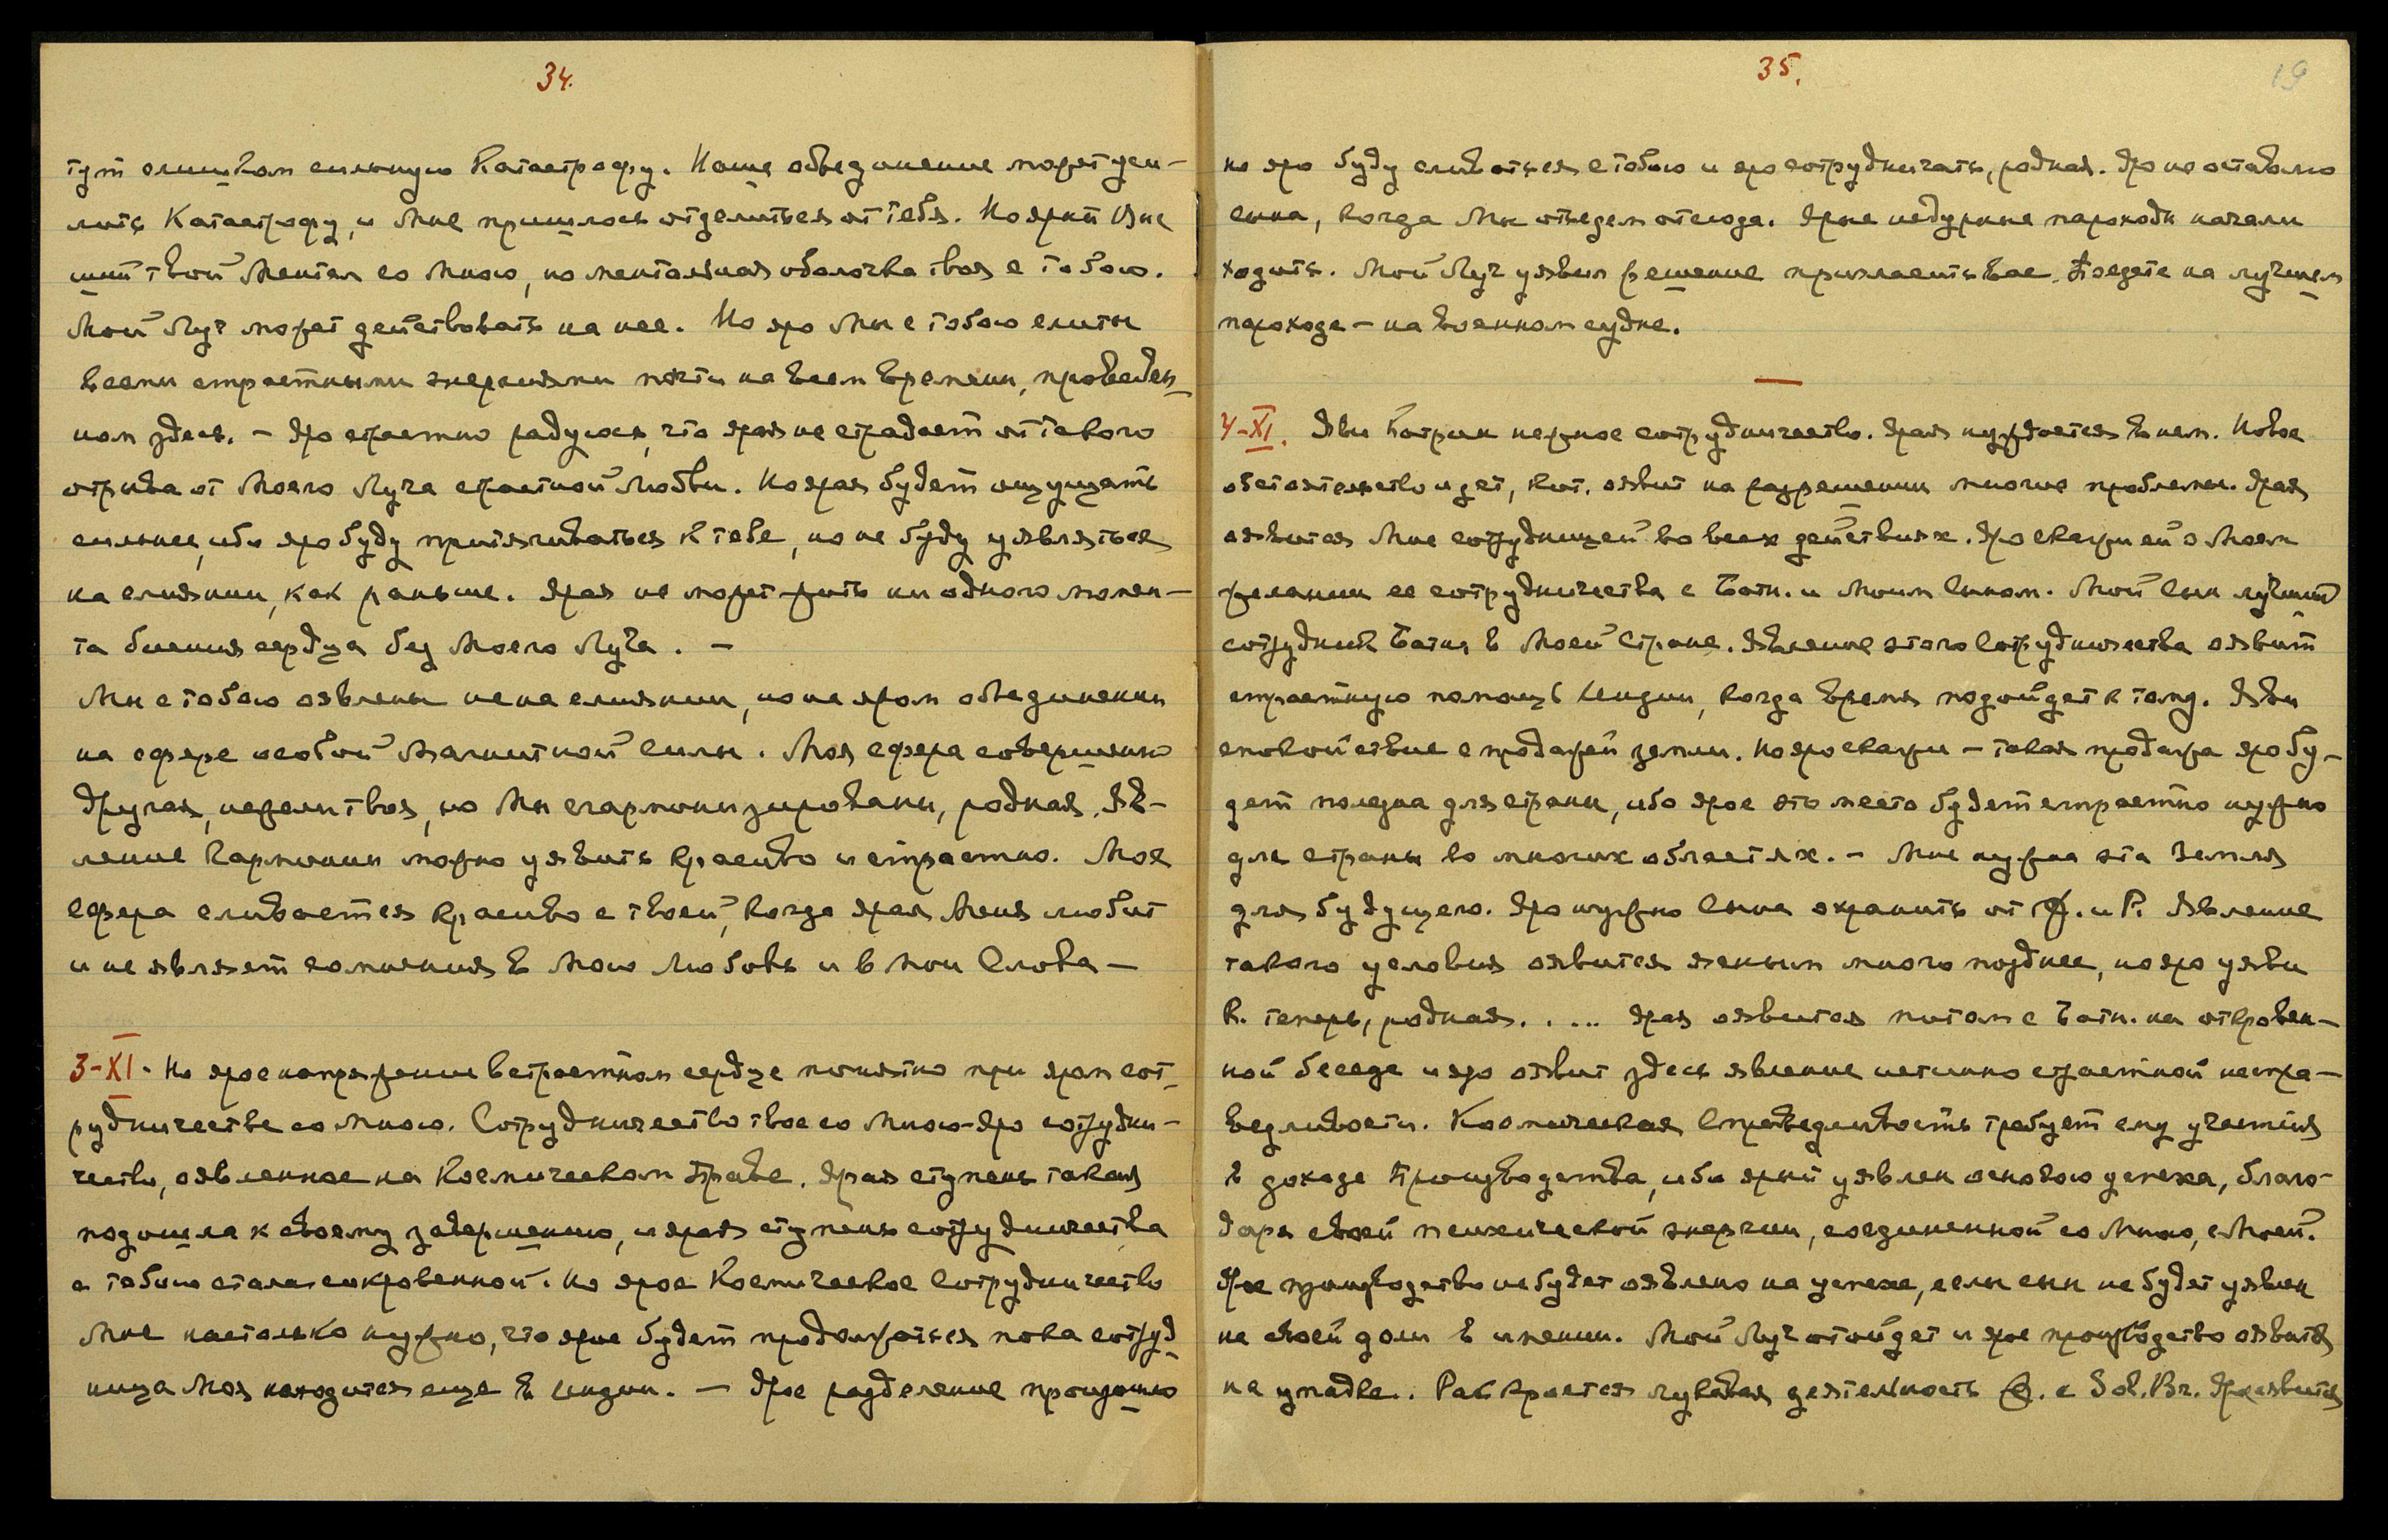 34.
тут слишком сильную Катастрофу. Наше объединение может уси-
лить Катастрофу, и Мне пришлось отделиться от тебя. Но ярый
ший твой Ментал со Мною, но ментальная оболочка твоя с тобою.
Мой Луч может действовать на нее. Но яро Мы с тобою слиты
всеми страстными энергиями почти на всем времени, проведен-
ном здесь. – Яро страстно радуюсь, что ярая не страдает от такого
отрыва от Моего Луча страстной Любви. Но ярая будет ощущать
сильнее, ибо яро буду притягиваться к тебе, но не буду уявляться
на слиянии, как раньше. Ярая не может жить ни одного момен-
та биения сердца без Моего Луча. –
Мы с тобою оявлены не на слиянии, но на яром объединении
на сфере особой Магнитной Силы. Моя сфера совершенно
другая, нежели твоя, но Мы сгармонизированы, родная. Яв-
ление Гармонии можно уявить красиво и страстно. Моя
Сфера сливается красиво с твоей, когда ярая Меня любит
и не являет сомнения в Мою Любовь и в Мои Слова –
3-XI. Но ярое напряжение в страстном сердце понятно при яром сот-
рудничестве со Мною. Сотрудничество твое со Мною – яро сотрудни-
чество, оявленное на Космическом Праве. Ярая ступень такая
подошла к своему завершению, и ярая ступень сотрудничества
с тобою стала сокровенной. Но ярое Космическое Сотрудничество
Мне настолько нужно, что ярое будет продолжаться пока сотруд-
ница Моя находится еще в Индии. – Ярое разделение произошло
35.
19
но яро буду сливаться с тобою и яро сотрудничать, родная. Яро не оставлю
сына, когда Мы отъедем отсюда. Ярые недурные пароходы начали
ходить. Мой Луч уявил решение пригласить Вас. Поедете на лучшем
пароходе – на военном судне.
4-XI. Яви Катрин нервное сотрудничество. Ярая нуждается в нем. Новое
обстоятельство идет, кот. оявит на разрешении многие проблемы. Ярая
оявится Мне сотрудницей во всех действиях. Яро скажи ей о Моем
желании ее сотрудничества с Батн. и Моим Сыном. Мой Сын лучший
сотрудник Батня в Моей Стране. Явление этого Сотрудничества оявит
страстную помощь Индии, когда время подойдет к тому. Яви
спокойствие с продажей земли. Но яро скажи – такая продажа яро бу-
дет полезна для страны, ибо ярое это место будет страстно нужно
для страны во многих областях. – Мне нужна эта Земля
для будущего. Яро нужно Сына охранить от и Р. Явление
такого условия оявится ясным много позднее, но яро уяви
К. теперь, родная. . ... Ярая оявится потом с Батн. на откровен-
ной беседе и яро оявит здесь явление истинно страстной неспра-
ведливости. Космическая Справедливость требует ему участия
в доходе Производства, ибо ярый уявлен основою успеха, благо-
даря своей психической энергии, соединенной со Мною, с Моей.
Ярое производство не будет оявлено на успехе, если сын не будет уявлен
на своей доли в имении. Мой Луч отойдет и ярое производство оявится
на упадке. Раскроется лукавая деятельность с Sov. Br. Яро оявится